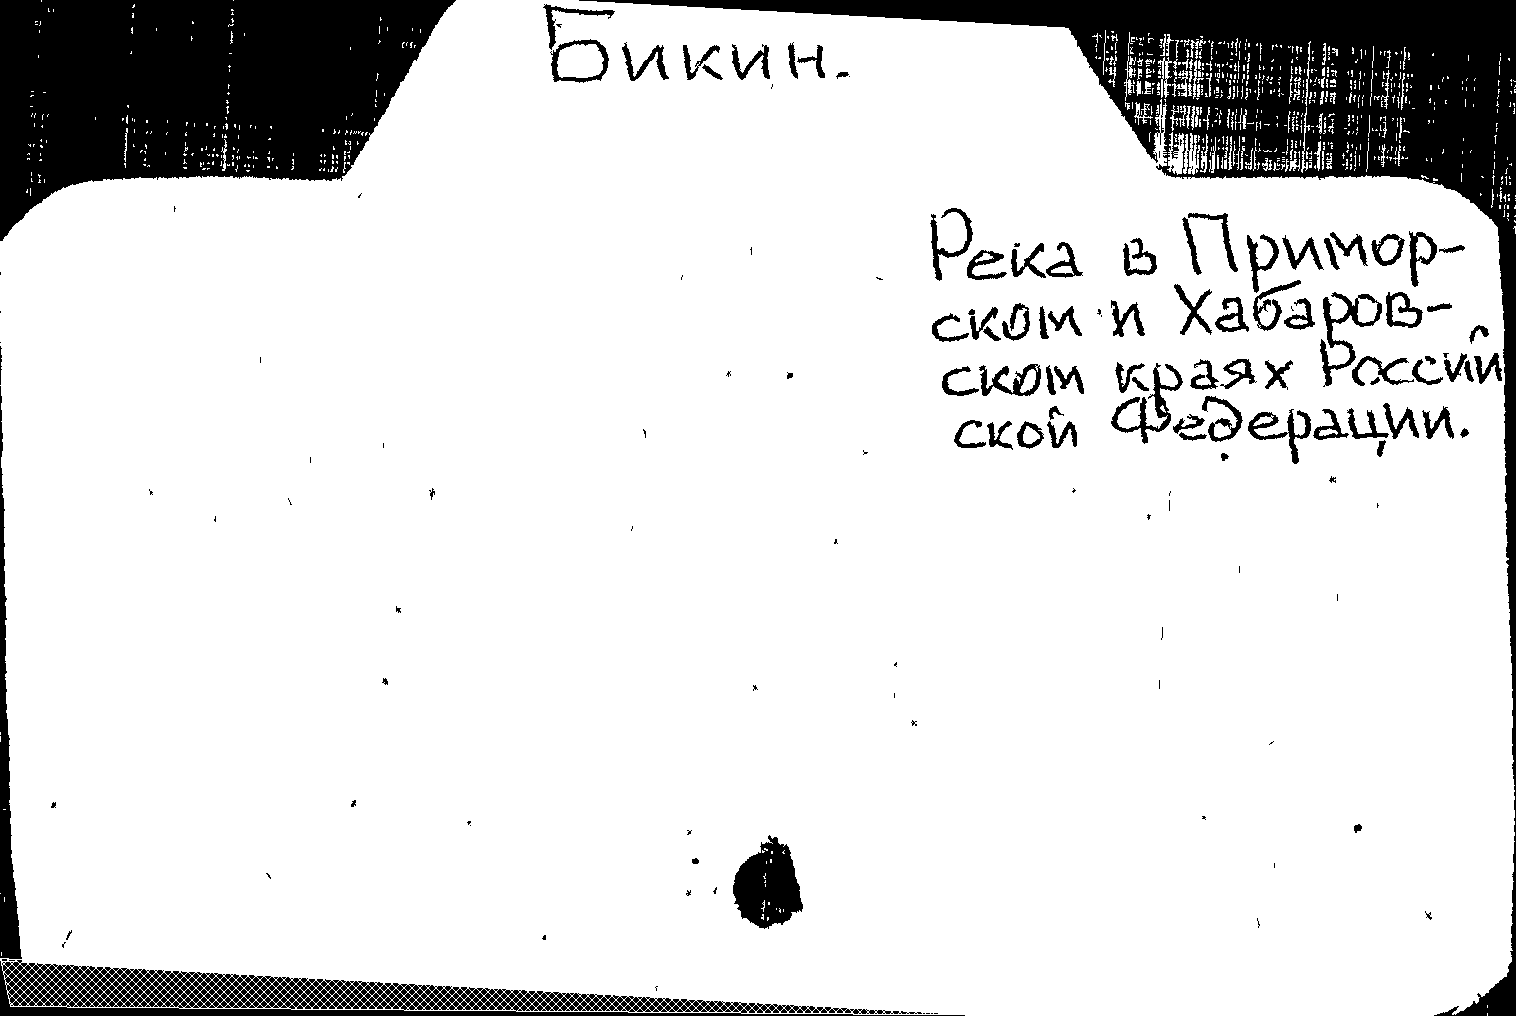 Бикин.
Река в Примор-
ском и Хабаров-
ском краях Россий
ской Федерации.